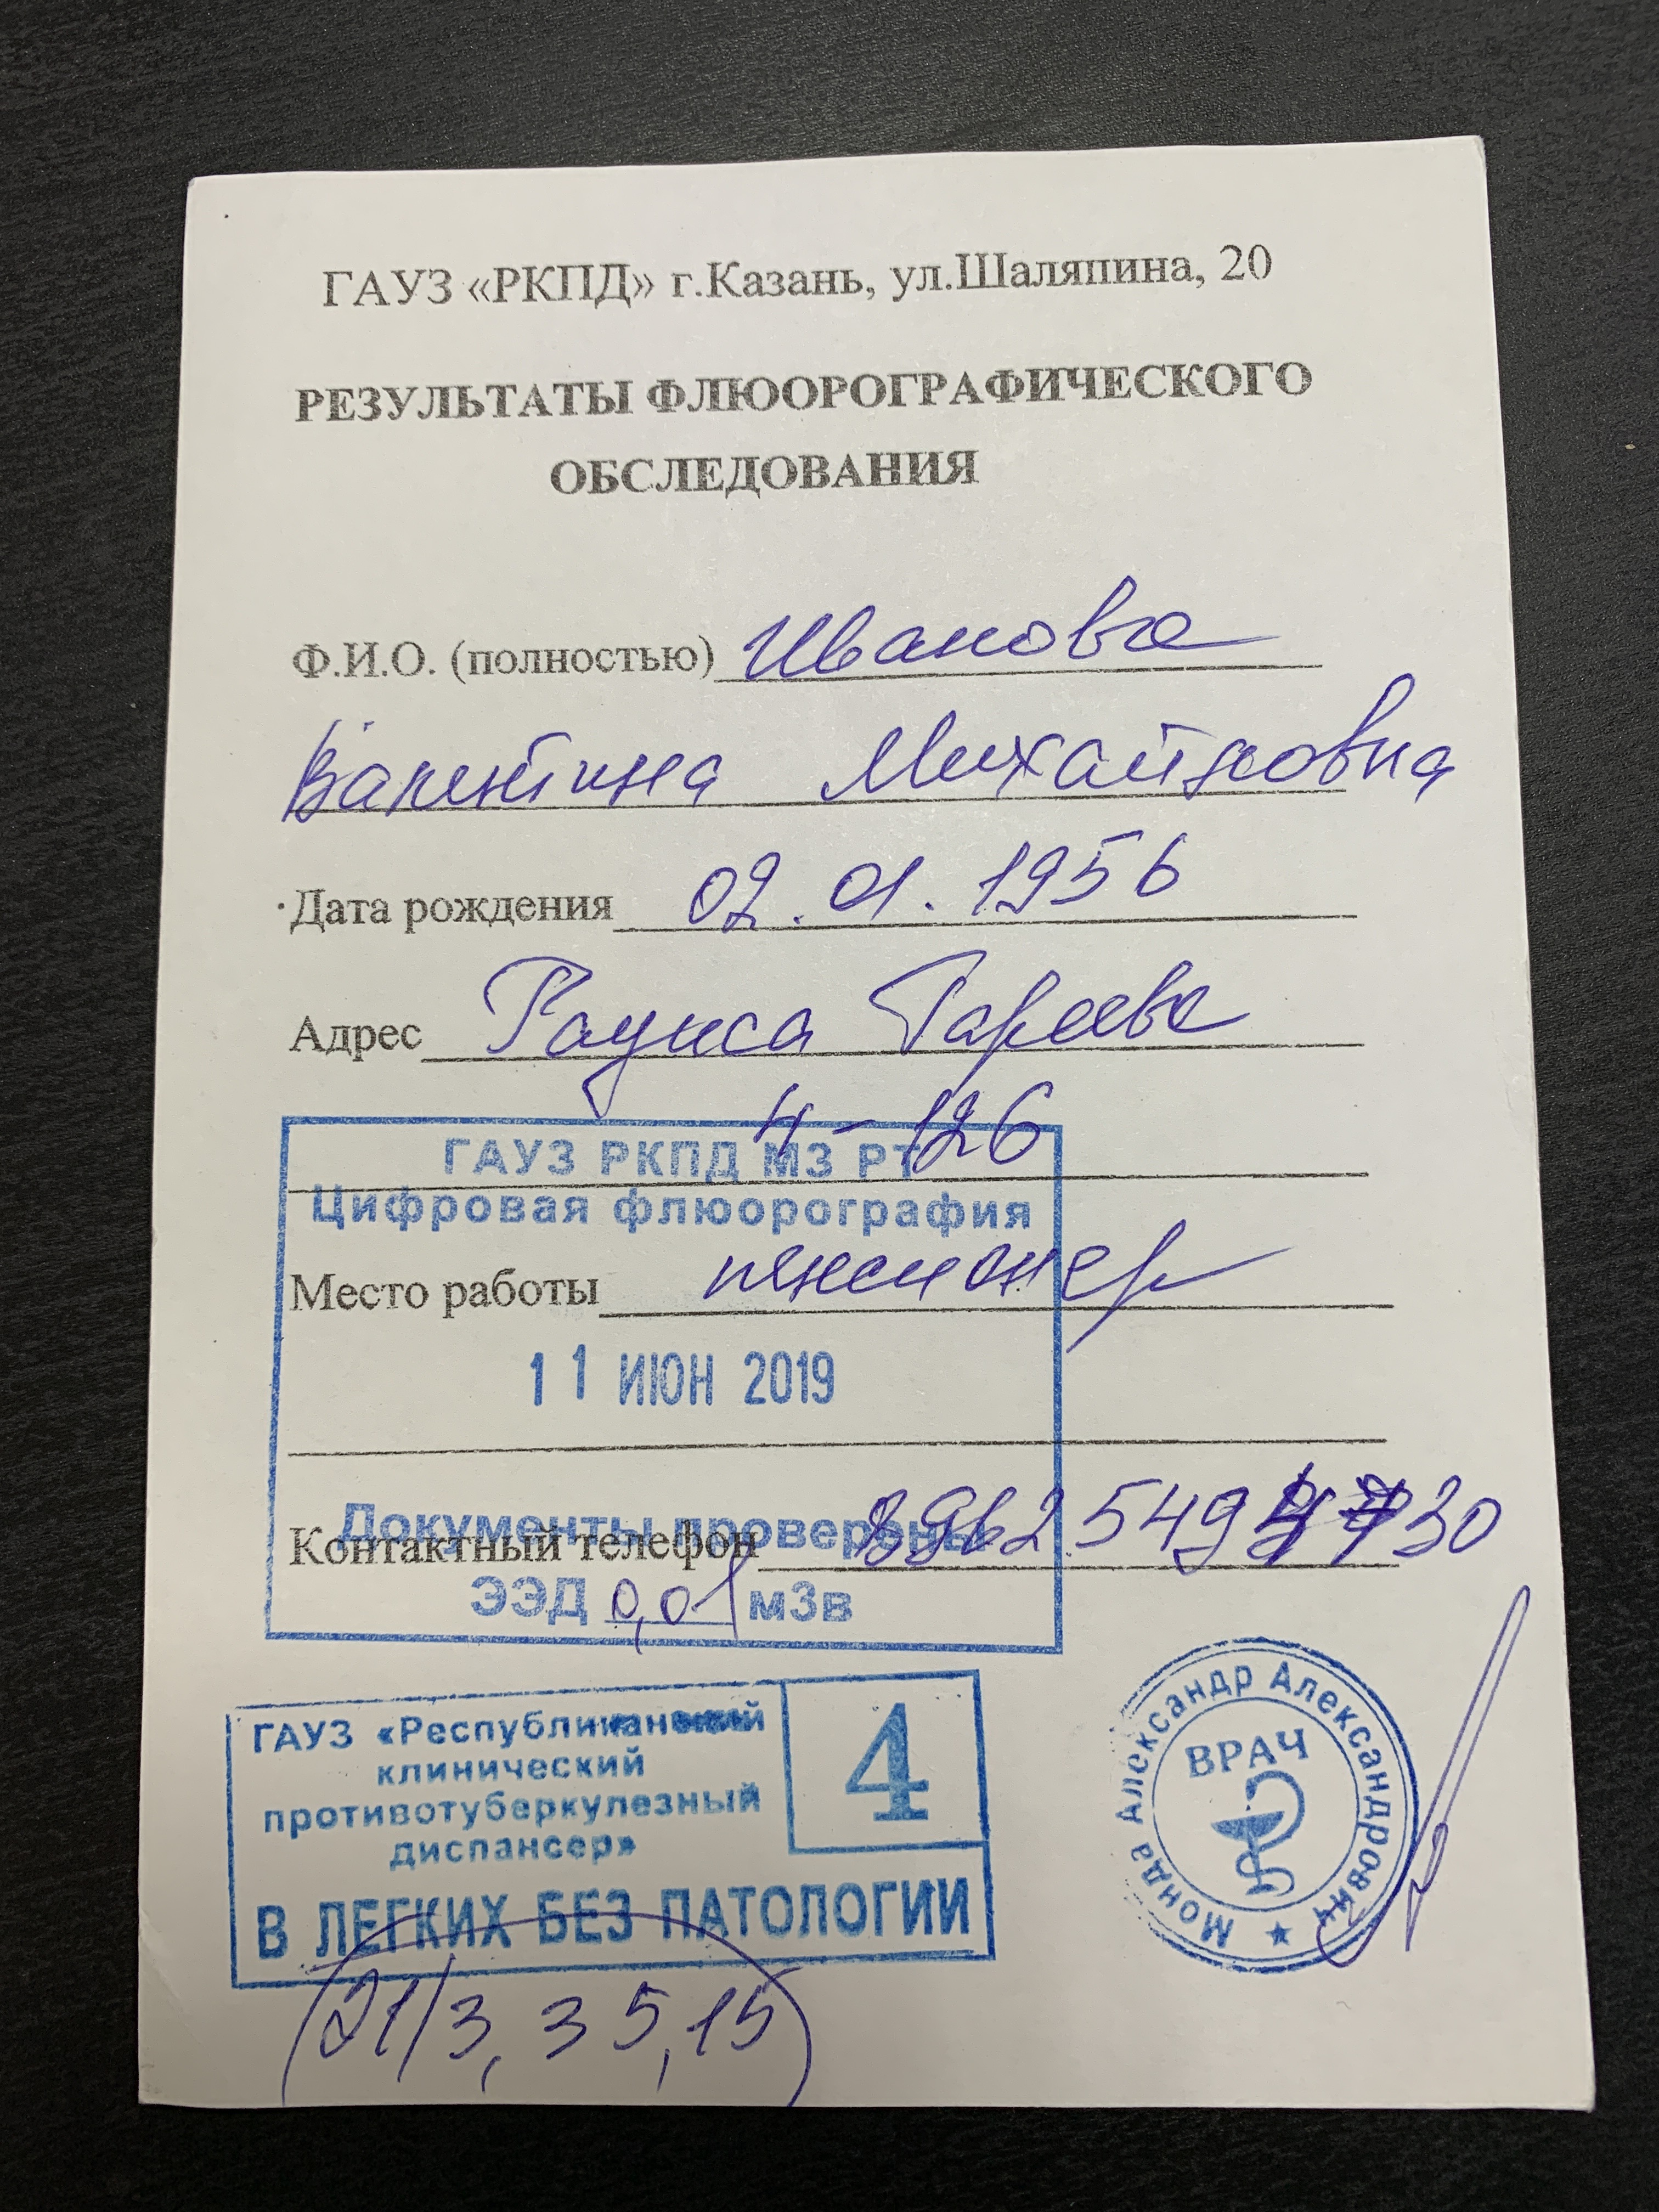 ГАУЗ «РКПД» г.Казань, ул.Шаляпина, 20
РЕЗУЛЬТАТЫ ФЛЮОРОГРАФИЧЕСКОГО
ОБСЛЕДОВАНИЯ
Ф.И.О. (полностью) Иванова
Валентина Михайловна
Дата рождения 02.01.1956
Адрес Рауиса Гареева
4-126
ГАУЗ РКПД МЗ РТ
Цифровая флюорография
Место работы пенсионер
11 ИЮН 2019
Документы проверены
Контактный телефон 8962 549 30
ЭЭД 0,01 мЗв
ГАУЗ «Республиканский
клинический
противотуберкулезный
диспансер»
4
В ЛЕГКИХ БЕЗ ПАТОЛОГИИ
Монда Александр Александрович
ВРАЧ
(21/3, 35,15)